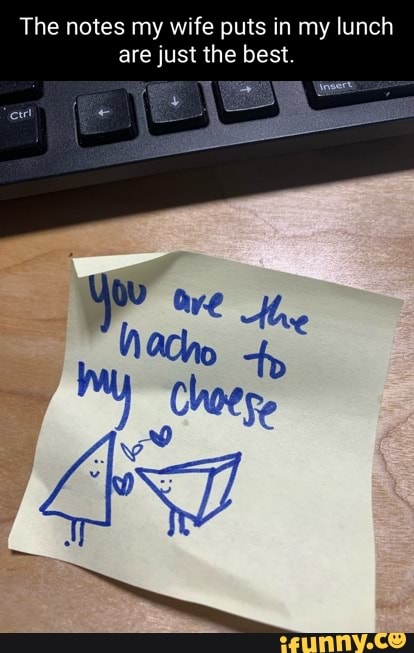 The notes my wife puts in my lunch
are just the best.
Insert
Ctrl
you are the
nacho to
my cheese
ifunny.co